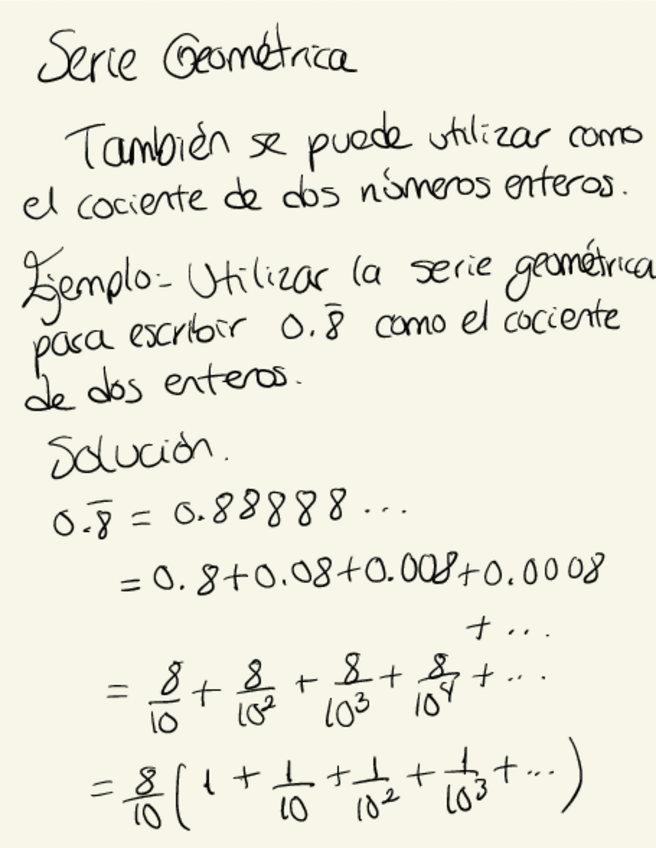 Serie Geométrica
También se puede utilizar como
el cociente de dos números enteros.
Ejemplo:- Utilizar la serie geométrica
para escribir 0.8̅ como el cociente
de dos enteros.
Solución.
0.8̅ = 0.88888...
= 0.8+0.08+0.008+0.0008
+ ...
= 8/10 + 8/10² + 8/10³ + 8/10⁴ + ...
= 8/10 ( 1 + 1/10 + 1/10² + 1/10³ + ... )